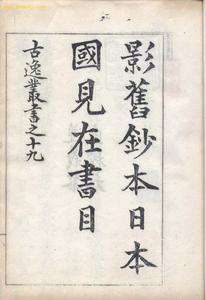 影舊鈔本日本
國見在書目
古逸叢書之十九